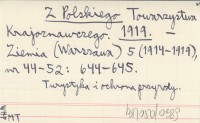 Z Polskiego Towarzystwa
Krajoznawczego. 1919. —
Ziemia (Warszawa) 5 (1914-1919),
nr 44-52: 644-645.
Turystyka i ochrona przyrody.
MT